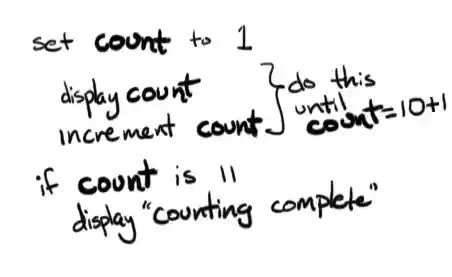 set count to 1
display count
increment count
do this
until
count=10+1
if count is 11
display "counting complete"